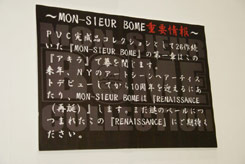 ～MON-SIEUR BOME重要情報～
PVC完成品コレクションとして26作続
いた『MON-SIEUR BOME』の第一章はこの
『アキラ』で幕を閉じます。
来年、NYのアートシーンへアーティス
トデビューしてから10周年を迎えるにあ
たり、MON-SIEUR BOMEは『RENAISSANCE
(再誕)』します。まだ謎のベールにつ
つまれたこの『RENAISSANCE』にご期待く
ださい。